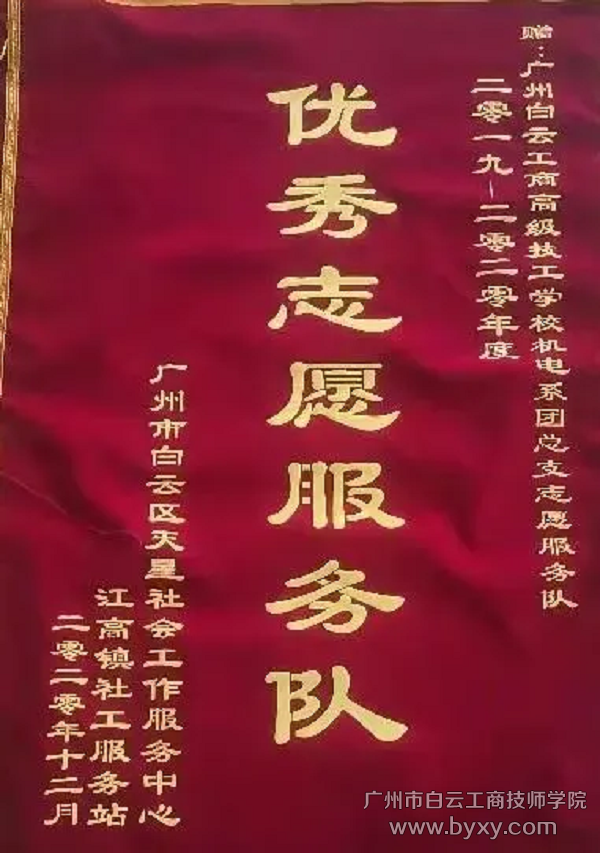 赠：广州白云工商高级技工学校机电系团总支志愿服务队
二零一九－二零二零年度
优秀志愿服务队
广州市白云区天星社会工作服务中心
江高镇社工服务站
二零二零年十二月
广州市白云工商技师学院
www.byxy.com